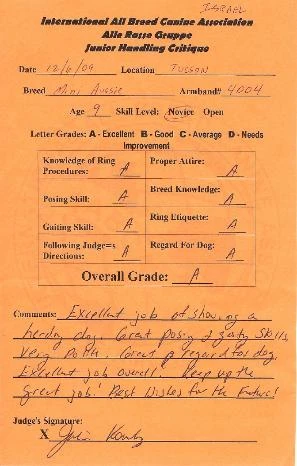 ISRAEL
International All Breed Canine Association
Alle Rasse Gruppe
Junior Handling Critique
Date 12/6/09 Location Tucson
Breed Mini Aussie Armband# 4004
Age 9 Skill Level: Novice Open
Letter Grades: A - Excellent B - Good C - Average D - Needs
Improvement
Knowledge of Ring Procedures: A Proper Attire: A
Posing Skill: A Breed Knowledge: A
Gaiting Skill: A Ring Etiquette: A
Following Judge=s Directions: A Regard For Dog: A
Overall Grade: A
Comments: Excellent job of showing a
herding dog. Great posing & gaiting skills,
very polite. Great regard for dog.
Excellent job overall! Keep up the
great job! Best Wishes for the Future!
Judge's Signature:
X